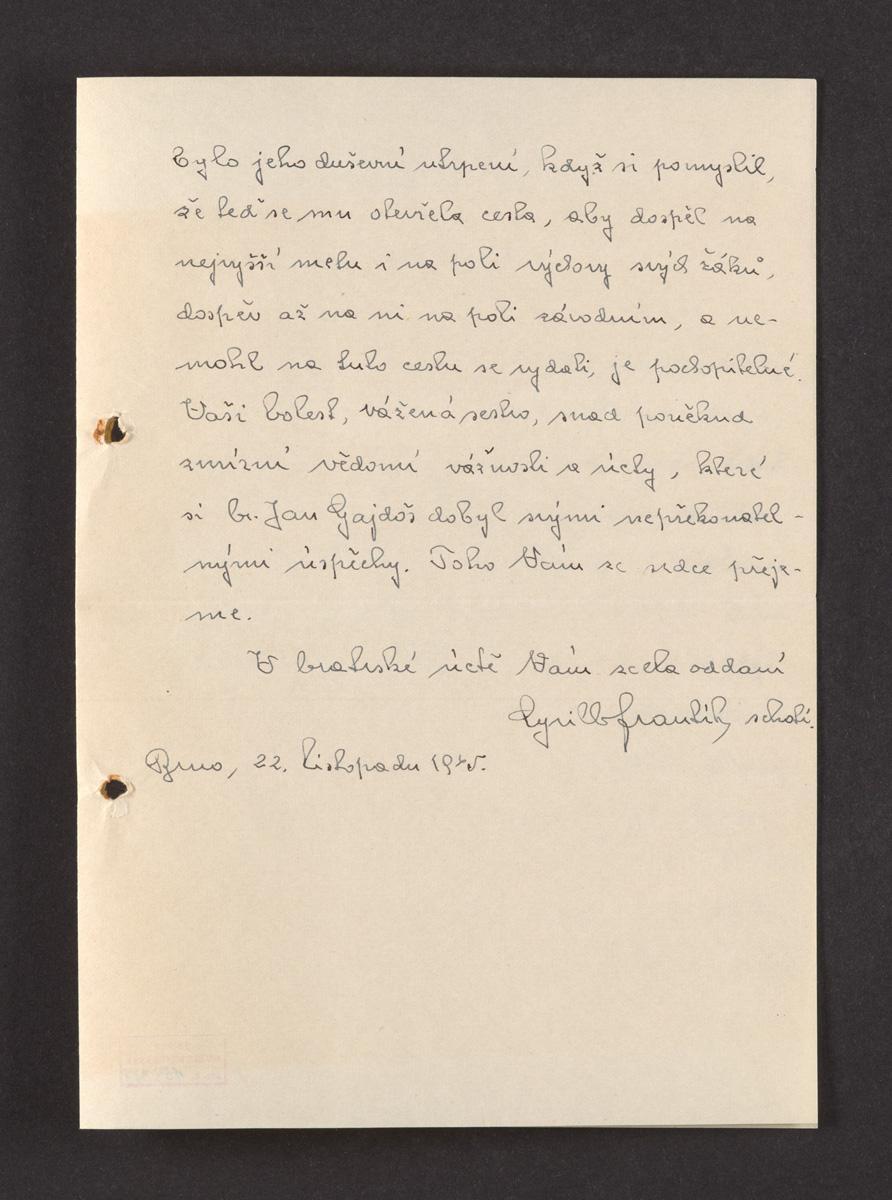 bylo jeho duševní utrpení, když si pomyslil,
že teď se mu otevřela cesta, aby dospěl na
nejvyšší metu i na poli výchovy svých žáků,
dospěv až na ni na poli závodním, a ne-
mohl na tuto cestu se vydati, je pochopitelné.
Vaši bolest, vážená sestro, snad poněkud
zmírní vědomí vážnosti a úcty, které
si br. Jan Gajdoš dobyl svými nepřekonatel-
nými úspěchy. Toho Vám ze srdce přeje-
me.
V bratrské úctě Vám zcela oddaní
Cyrill Frantík,
Brno, 22. listopadu 1945.